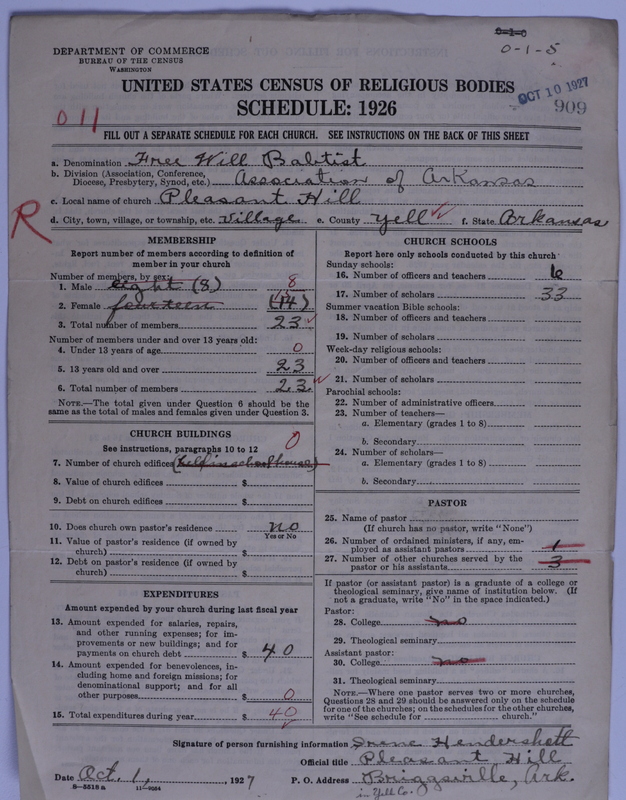 0-1-0
0-1-5
DEPARTMENT OF COMMERCE
BUREAU OF THE CENSUS
WASHINGTON
UNITED STATES CENSUS OF RELIGIOUS BODIES
OCT 10 1927
SCHEDULE: 1926
909
011
FILL OUT A SEPARATE SCHEDULE FOR EACH CHURCH. SEE INSTRUCTIONS ON THE BACK OF THIS SHEET
a. Denomination Free Will Babtist
b. Division (Association, Conference, Diocese, Presbytery, Synod, etc.) Association of Arkansas
c. Local name of church Pleasant Hill
d. City, town, village, or township, etc. Village e. County Yell f. State Arkansas
R
MEMBERSHIP
Report number of members according to definition of
member in your church
Number of members, by sex:
1. Male eight (8) 8
2. Female fourteen (14)
3. Total number of members 23
Number of members under and over 13 years old:
4. Under 13 years of age 0
5. 13 years old and over 23
6. Total number of members 23
NOTE.—The total given under Question 6 should be the
same as the total of males and females given under Question 3.
CHURCH BUILDINGS
See instructions, paragraphs 10 to 12 0
7. Number of church edifices (held in school house)
8. Value of church edifices $
9. Debt on church edifices $
10. Does church own pastor's residence no
Yes or No
11. Value of pastor's residence (if owned by
church) $
12. Debt on pastor's residence (if owned by
church) $
EXPENDITURES
Amount expended by your church during last fiscal year
13. Amount expended for salaries, repairs,
and other running expenses; for im-
provements or new buildings; and for
payments on church debt $ 40
14. Amount expended for benevolences, in-
cluding home and foreign missions; for
denominational support; and for all
other purposes $ 0
15. Total expenditures during year $ 40
CHURCH SCHOOLS
Report here only schools conducted by this church
Sunday schools:
16. Number of officers and teachers 6
17. Number of scholars 33
Summer vacation Bible schools:
18. Number of officers and teachers
19. Number of scholars
Week-day religious schools:
20. Number of officers and teachers
21. Number of scholars
Parochial schools:
22. Number of administrative officers
23. Number of teachers—
a. Elementary (grades 1 to 8)
b. Secondary
24. Number of scholars—
a. Elementary (grades 1 to 8)
b. Secondary
PASTOR
25. Name of pastor
(If church has no pastor, write "None")
26. Number of ordained ministers, if any, em-
ployed as assistant pastors 1
27. Number of other churches served by the
pastor or his assistants 3
If pastor (or assistant pastor) is a graduate of a college or
theological seminary, give name of institution below. (If
not a graduate, write "No" in the space indicated.)
Pastor:
28. College no
29. Theological seminary
Assistant pastor:
30. College no
31. Theological seminary
NOTE.—Where one pastor serves two or more churches,
Questions 28 and 29 should be answered only on the schedule
for one of the churches; on the schedules for the other churches,
write "See schedule for church."
Signature of person furnishing information Irene Hendershott
Official title Pleasant Hill
Date Oct. 1, 1927 P. O. Address Briggsville, Ark.
8-5518 a 11-9034 in Yell Co.